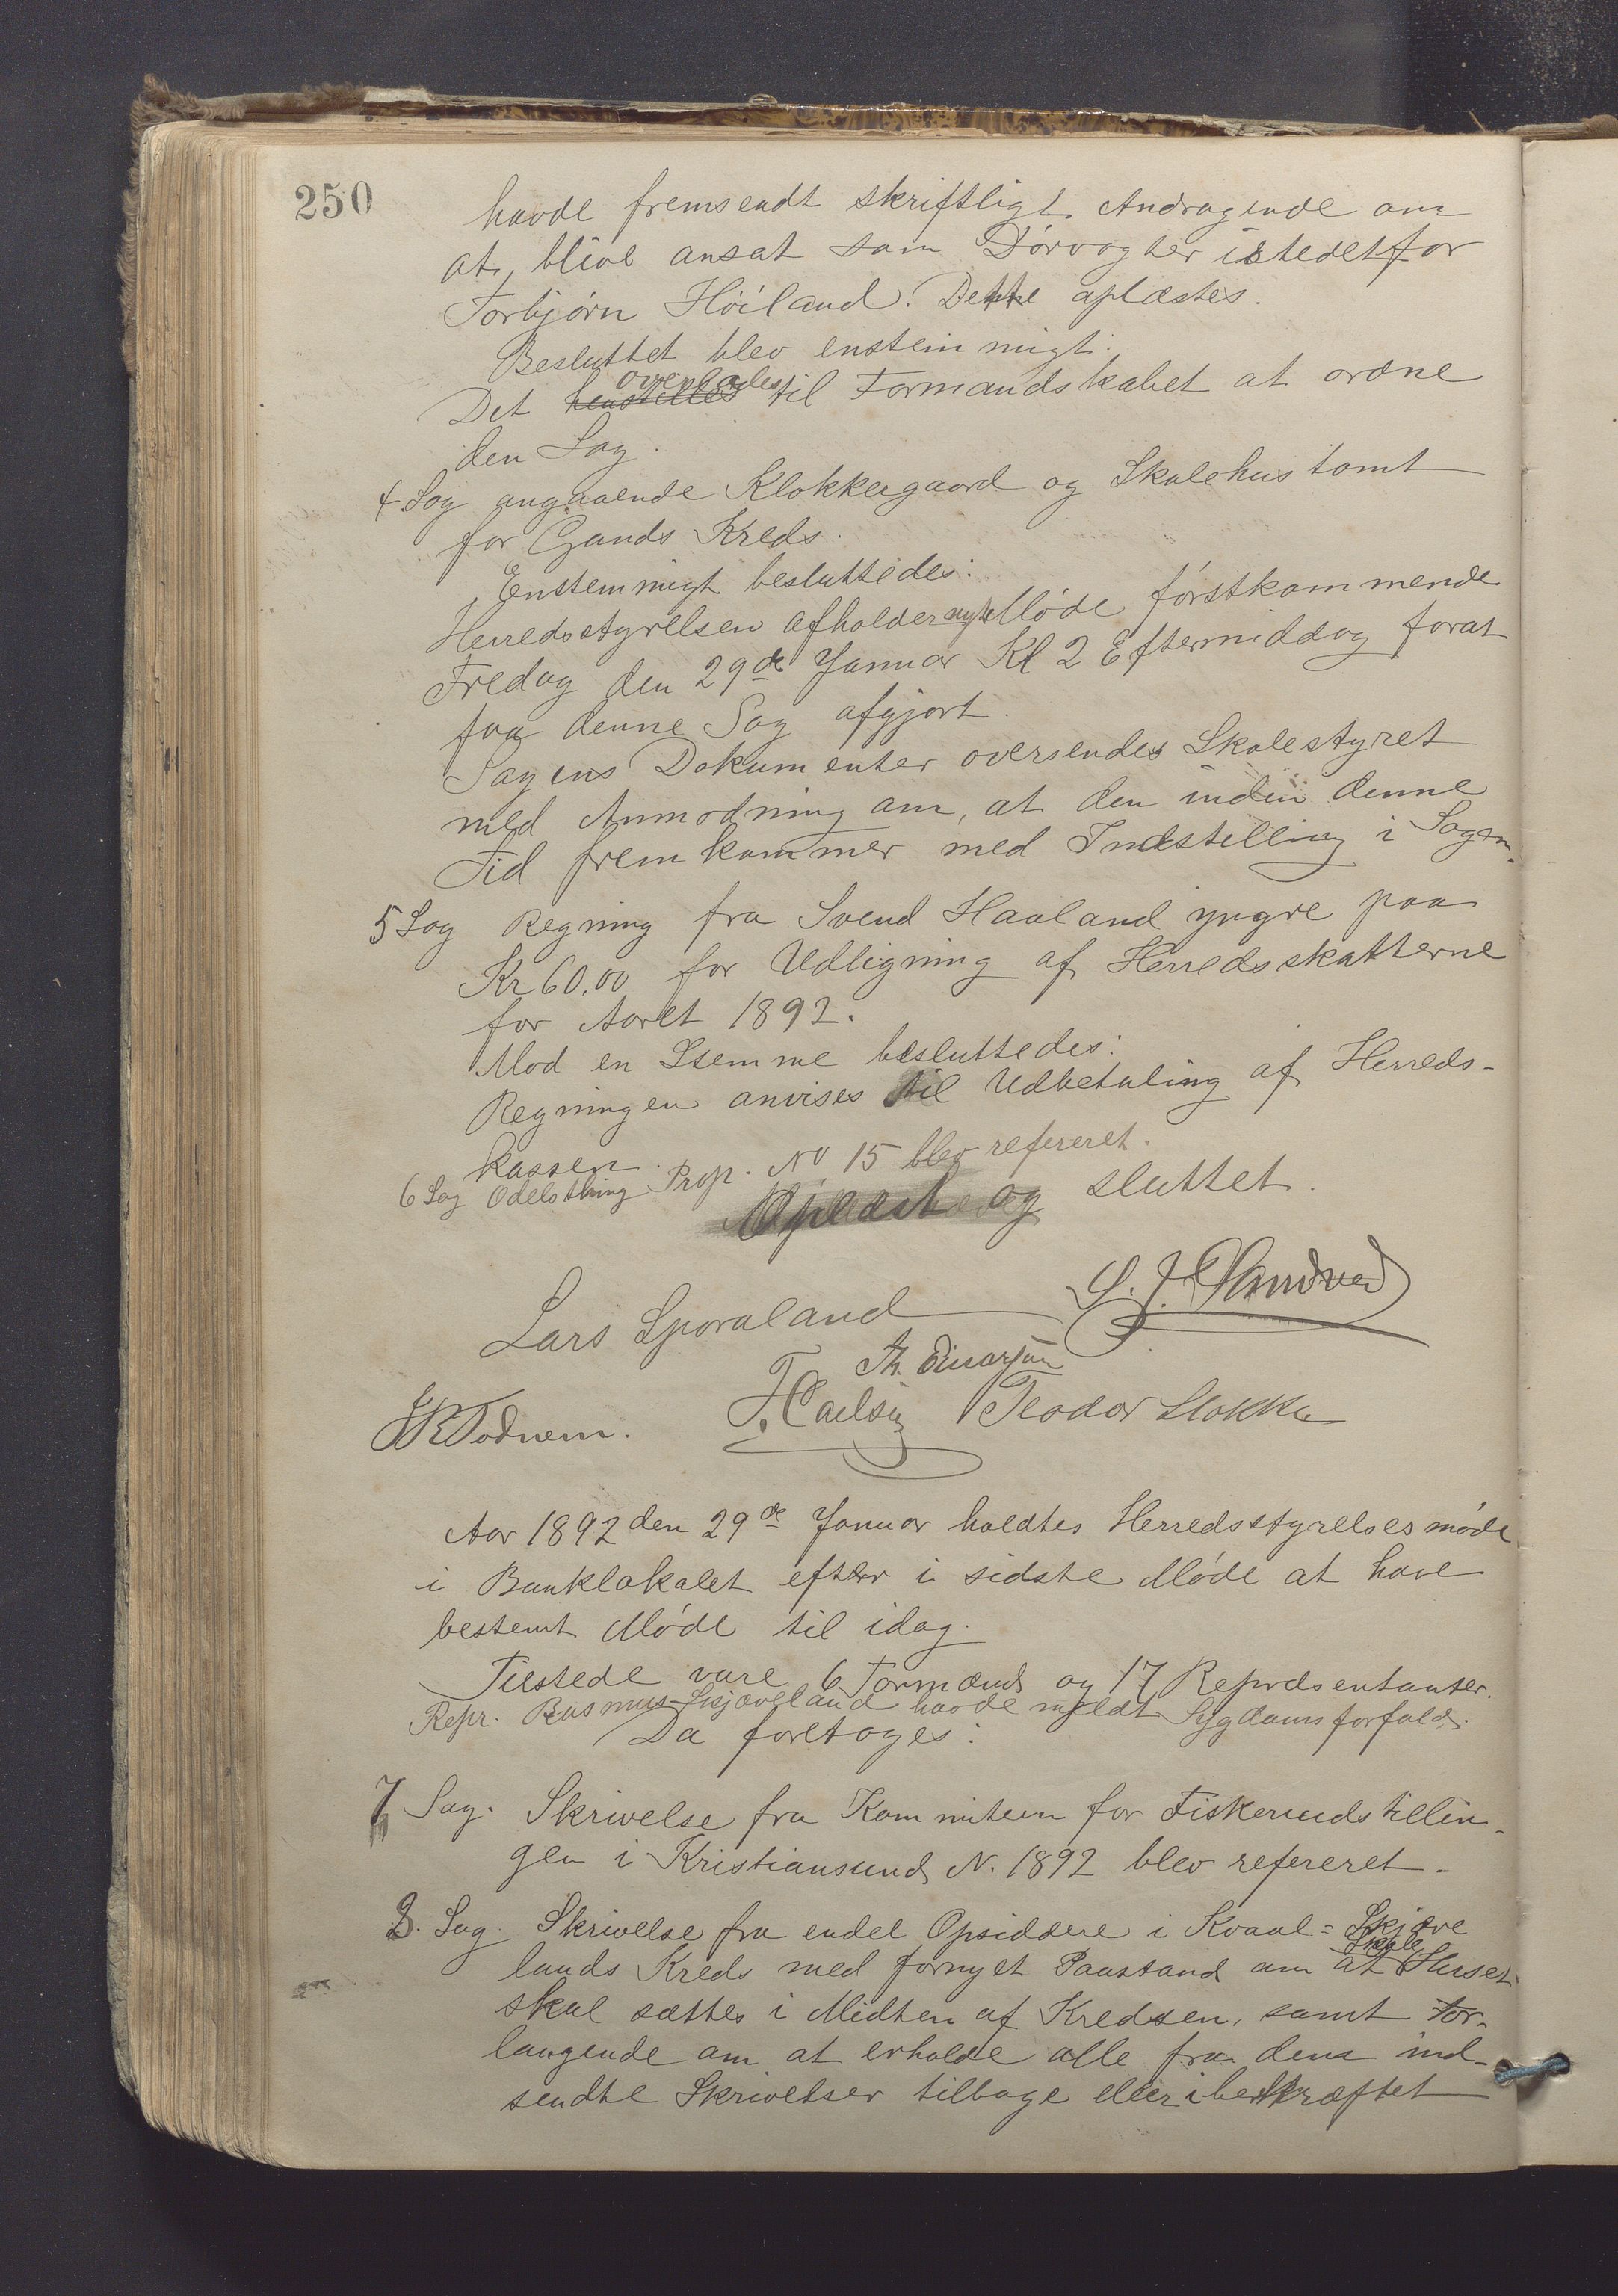 250
havde fremsendt skriftligt Andragende om
at blive ansat som Dørvogter istedetfor
Torbjørn Høiland. Dette oplæstes.
Besluttet blev enstemmigt:
overlades
Det henstilles til Formandskabet at ordne
den Sag.
4 Sag angaaende Klokkergaard og Skolehustomt
for Gands Kreds.
Enstemmigt besluttedes:
Herredsstyrelsen afholder nyt Møde førstkommende
Fredag den 29de Januar Kl 2 Eftermiddag forat
faa denne Sag afgjort.
Sagens Dokumenter oversendes Skolestyret
med Anmodning om, at den inden denne
Tid fremkommer med Indstilling i Sagen.
5 Sag Regning fra Svend Haaland yngre paa
Kr 60.00 for Udligning af Herredsskatterne
for Aaret 1892.
Mod en Stemme besluttedes:
Regningen anvises til Udbetaling af Herreds-
kassen.
6 Sag Odelsthing Prop. No 15 blev refereret.
Oplæst og sluttet.
Lars Sporaland
Th. Einarsen
T. Carlsen Teodor Stokka
Aar 1892 den 29de Januar holdtes Herredsstyrelsesmøde
i Banklokalet efter i sidste Møde at have
bestemt Møde til idag.
Tilstede vare 6 Formænd og 17 Repræsentanter.
Repr. Rasmus Skjæveland havde meldt Sygdomsforfald.
Da foretoges:
7 Sag. Skrivelse fra Kommiteen for Fiskeriudstillin-
gen i Kristiansund N. 1892 blev refereret.
8. Sag. Skrivelse fra endel Opsiddere i Kvaal = Skjæve
Skole
lands Kreds med fornyet Paastand om at Huset
skal sættes i Midten af Kredsen, samt for-
langende om at erholde alle fra dem ind-
sendte Skrivelser tilbage eller i bekræftet